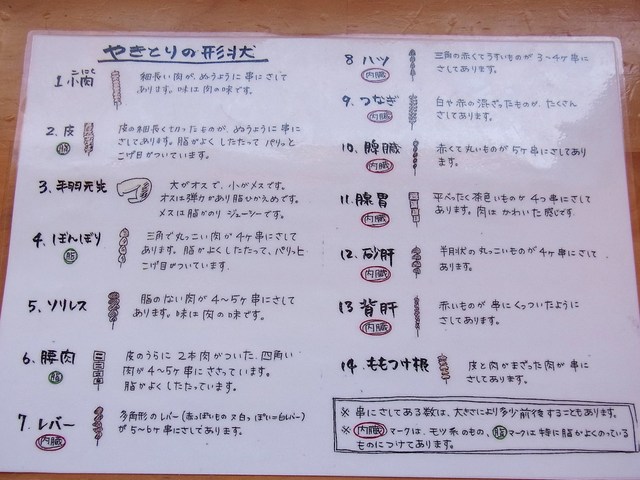 やきとりの形状
1 小肉
こにく
細長い肉が、ぬうように串にさして
あります。味は肉の味です。
2. 皮
脂
皮の細長く切ったものが、ぬうように串に
さしてあります。脂がよくしたたって パリッと
こげ目がついています。
3. 手羽元先
大がオスで、小がメスです。
オスは弾力があり脂ひかえめです。
メスは脂がのり ジューシーです。
4. ぼんぼり
脂
三角で丸っこい肉が4ヶ串にさして
あります。脂がよくしたたって、パリッと
こげ目がついています.
5、ソリレス
脂のない肉が 4〜5ヶ串にさして
あります。味は肉の味です。
6. 腰肉
脂
皮のうらに 2本肉がついた、四角い
肉が4〜5ヶ串にささっています。
脂がよくしたたっています。
7. レバー
内臓
多角形のレバー(赤っぽいもの又白っぽい=白レバー)
が 5〜6ヶ串にさしてあります。
8 ハツ
内臓
三角の赤くてうすいものが 3〜4ヶ串に
さしてあります。
9. つなぎ
内臓
白や赤の混ざったものが、たくさん
さしてあります。
10. 脾臓
内臓
赤くて丸いものが 5ヶ串にさしてあり
ます。
11. 腺胃
内臓
平べったく茶色いものが 4つ串にさして
あります。肉は かわいた感じです.
12. 砂肝
内臓
半月状の丸っこいものが4ヶ串にさして
あります。
13 背肝
内臓
赤いものが 串にくっついたように
さしてあります。
14. ももつけ根
皮と肉がまざった肉が串に
さしてあります。
※ 串にさしてある数は、大きさにより多少前後することもあります。
※ 内臓マークは、モツ系のもの、脂マークは特に脂がよくのっている
ものにつけてあります。